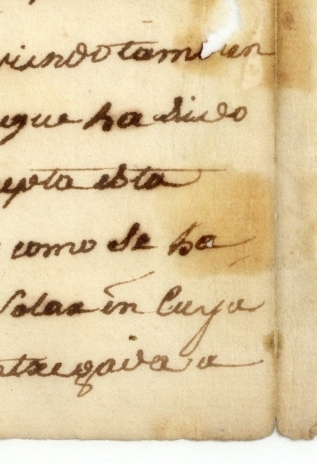 viendo tambien
que ha sido
epta esta
como se ha
Solar en Cuya
ntregada a